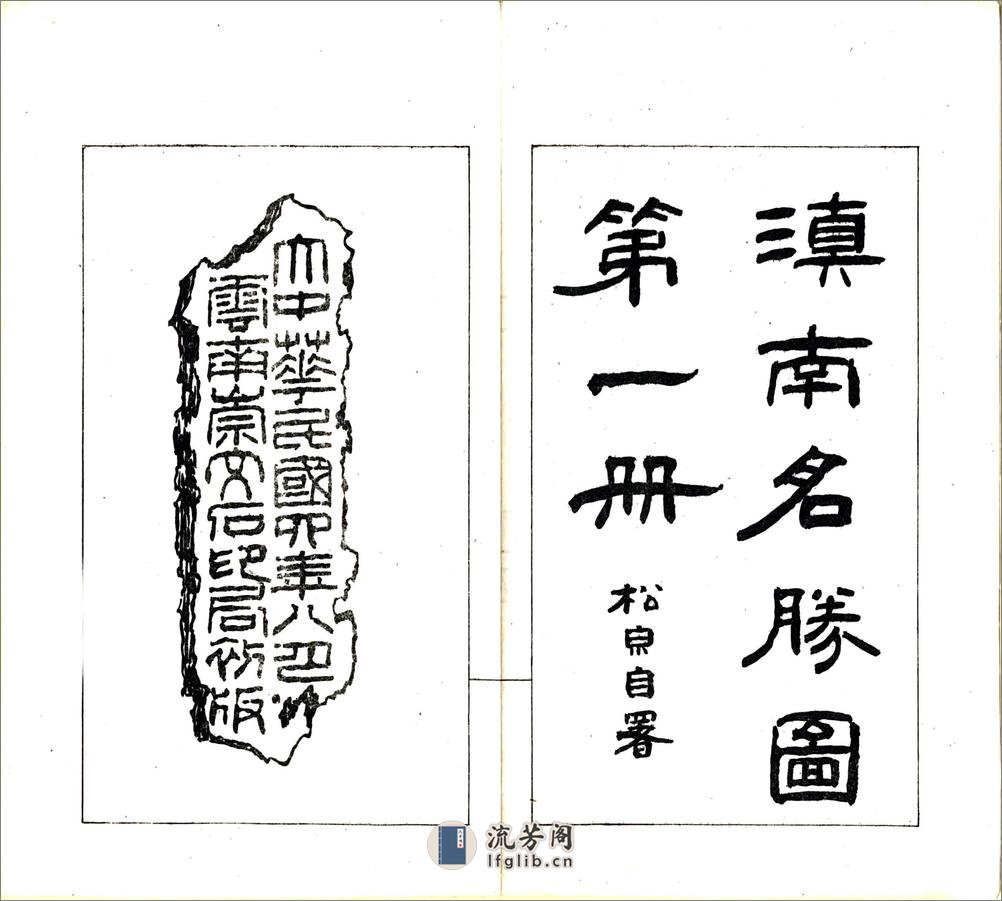 滇南名勝圖
第一冊
松泉自署
大中華民國四年八月
雲南崇文石印局初版
流芳阁
lfglib.cn